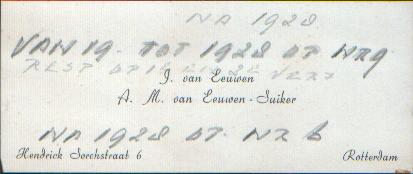 NA 1928
VAN 19- TOT 1928 OP NR9
REST OP
J. van Eeuwen
A. M. van Eeuwen-Suiker
NA 1928 OP NR 6
Hendrick Sorchstraat 6 Rotterdam